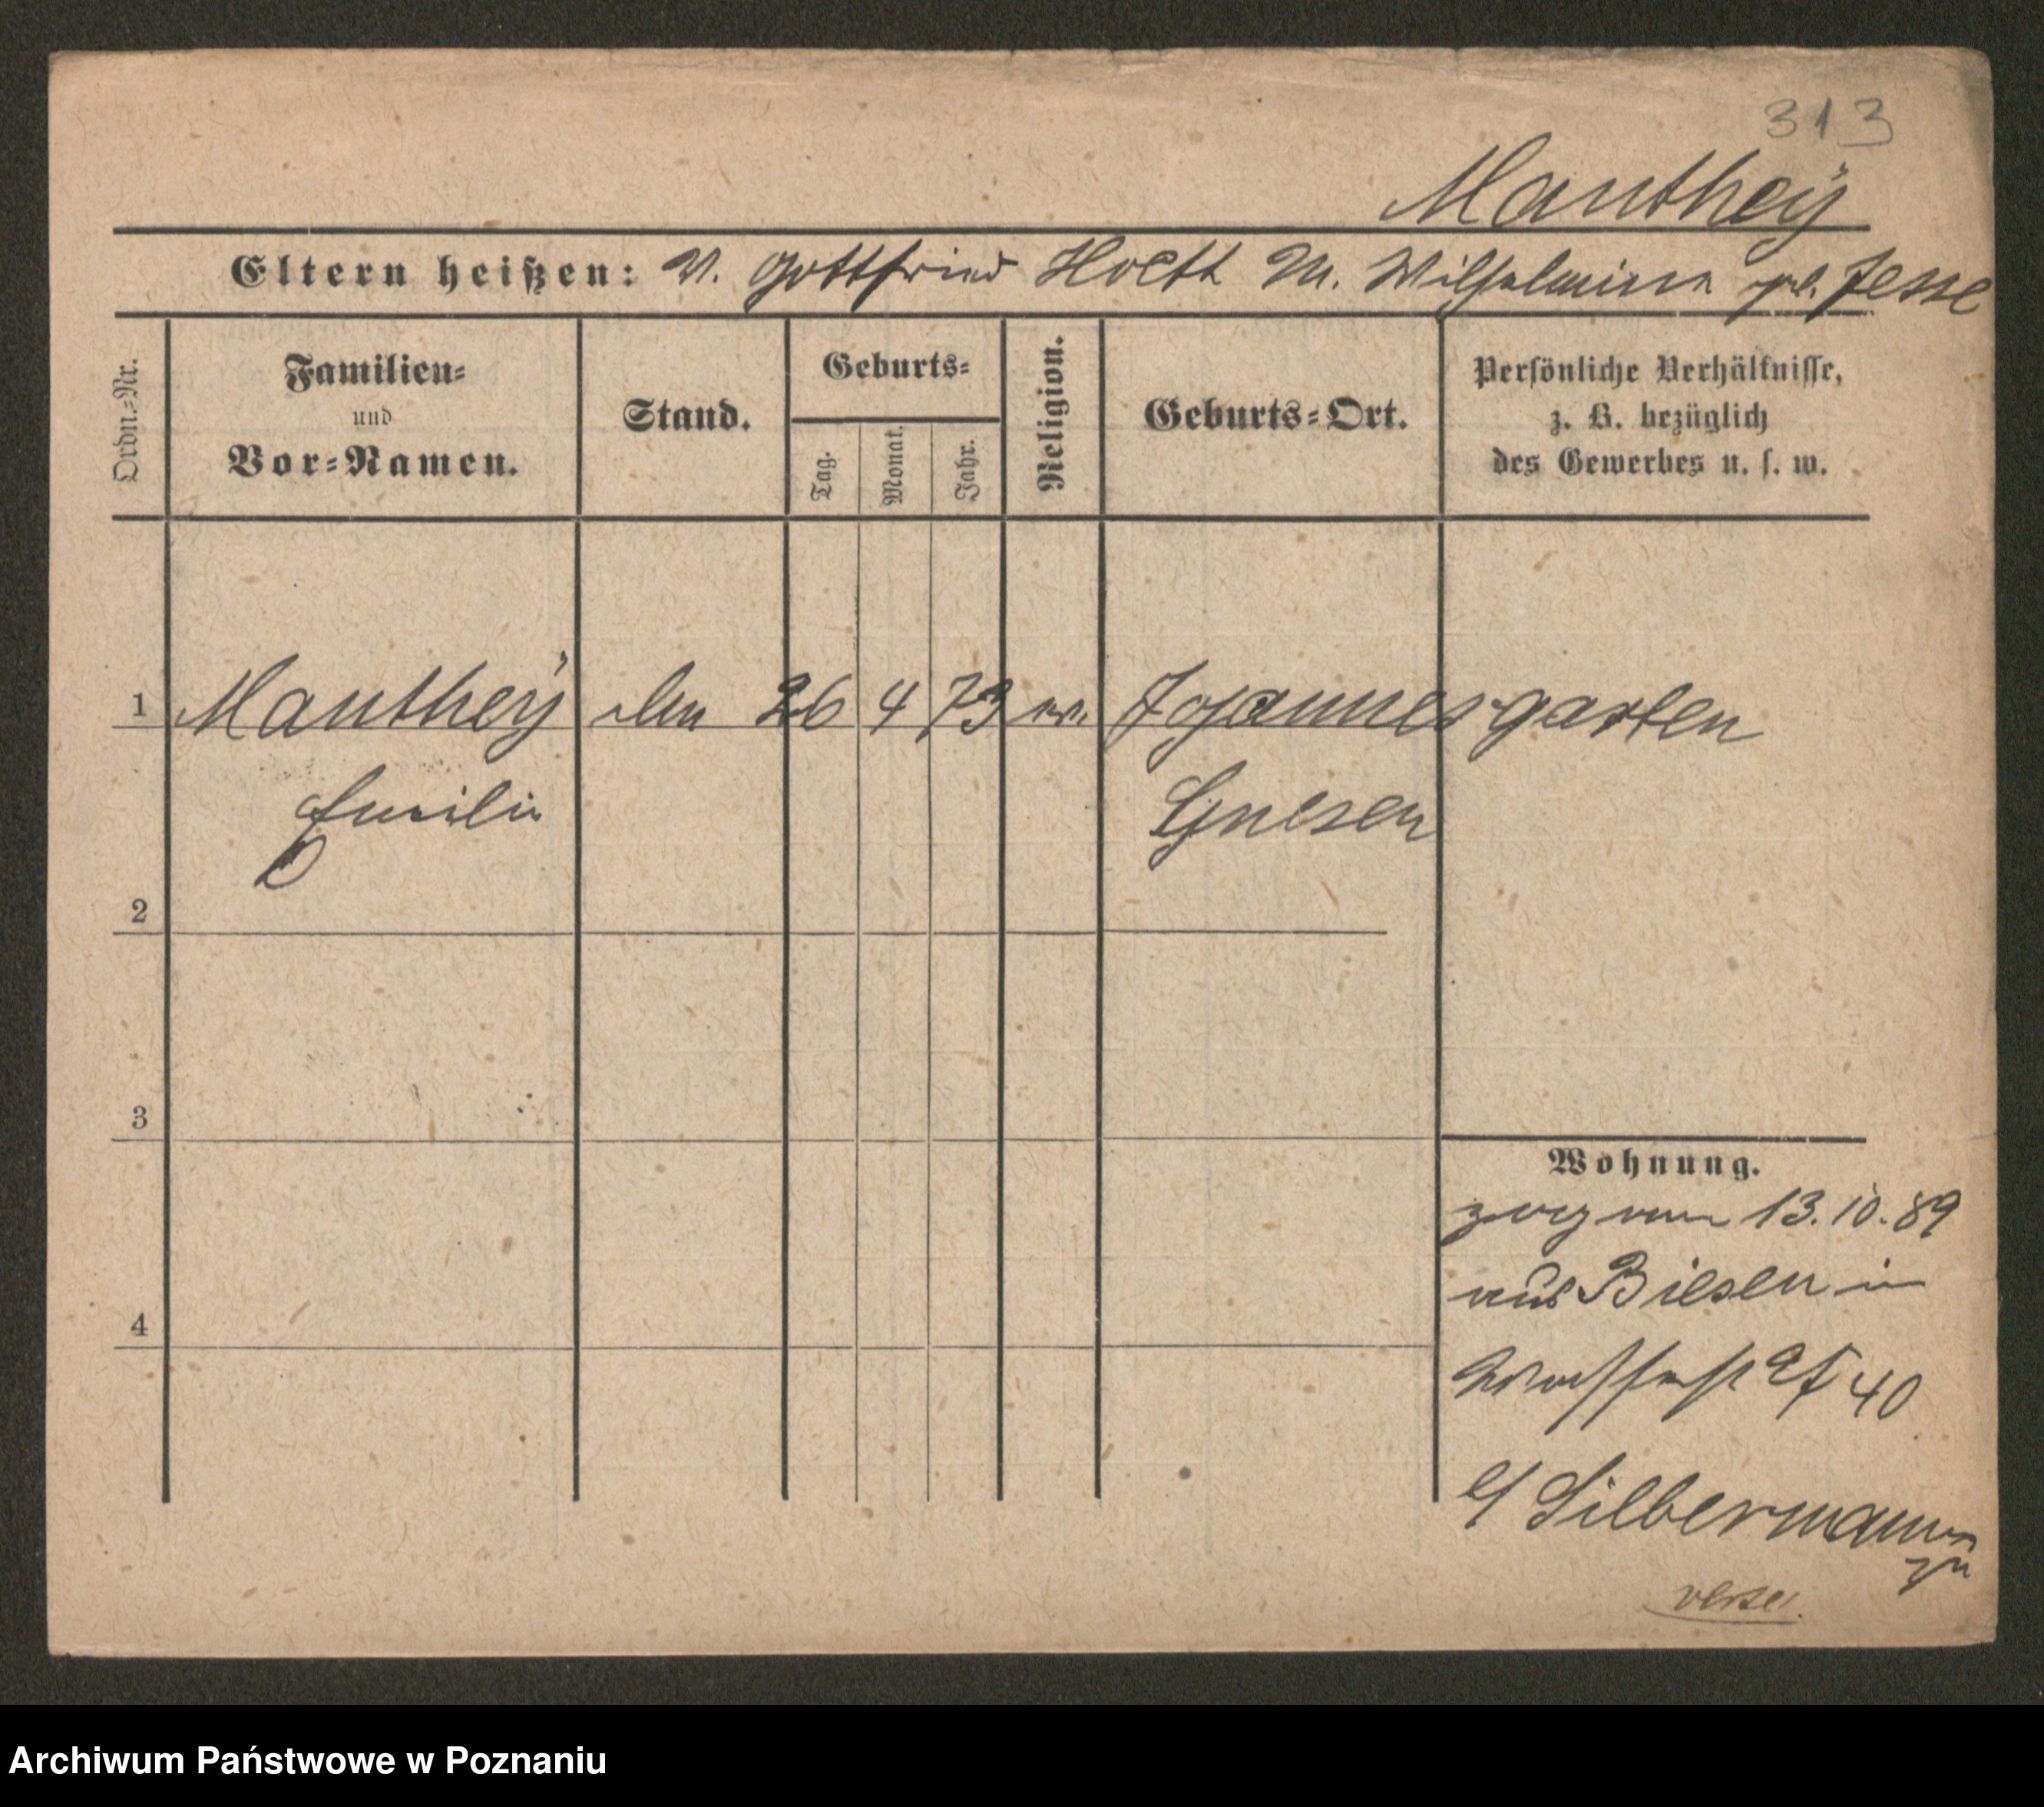 313
Manthey
Eltern heißen: V. Gottfried Hoeft M. Wilhelmine geb. Jesse
Ordn.-Nr.
Familien-
und
Vor-Namen.
Stand.
Geburts-
Tag.
Monat.
Jahr.
Religion.
Geburts-Ort.
Persönliche Verhältnisse,
z. B. bezüglich
des Gewerbes u. s. w.
1 Manthey 26 4 73 ev. Johannesgarten
Emilie Gnesen
2
3
4
Wohnung.
zog am 13.10.89
aus Biesen in
40
b/ Silbermann
zu
Archiwum Państwowe w Poznaniu